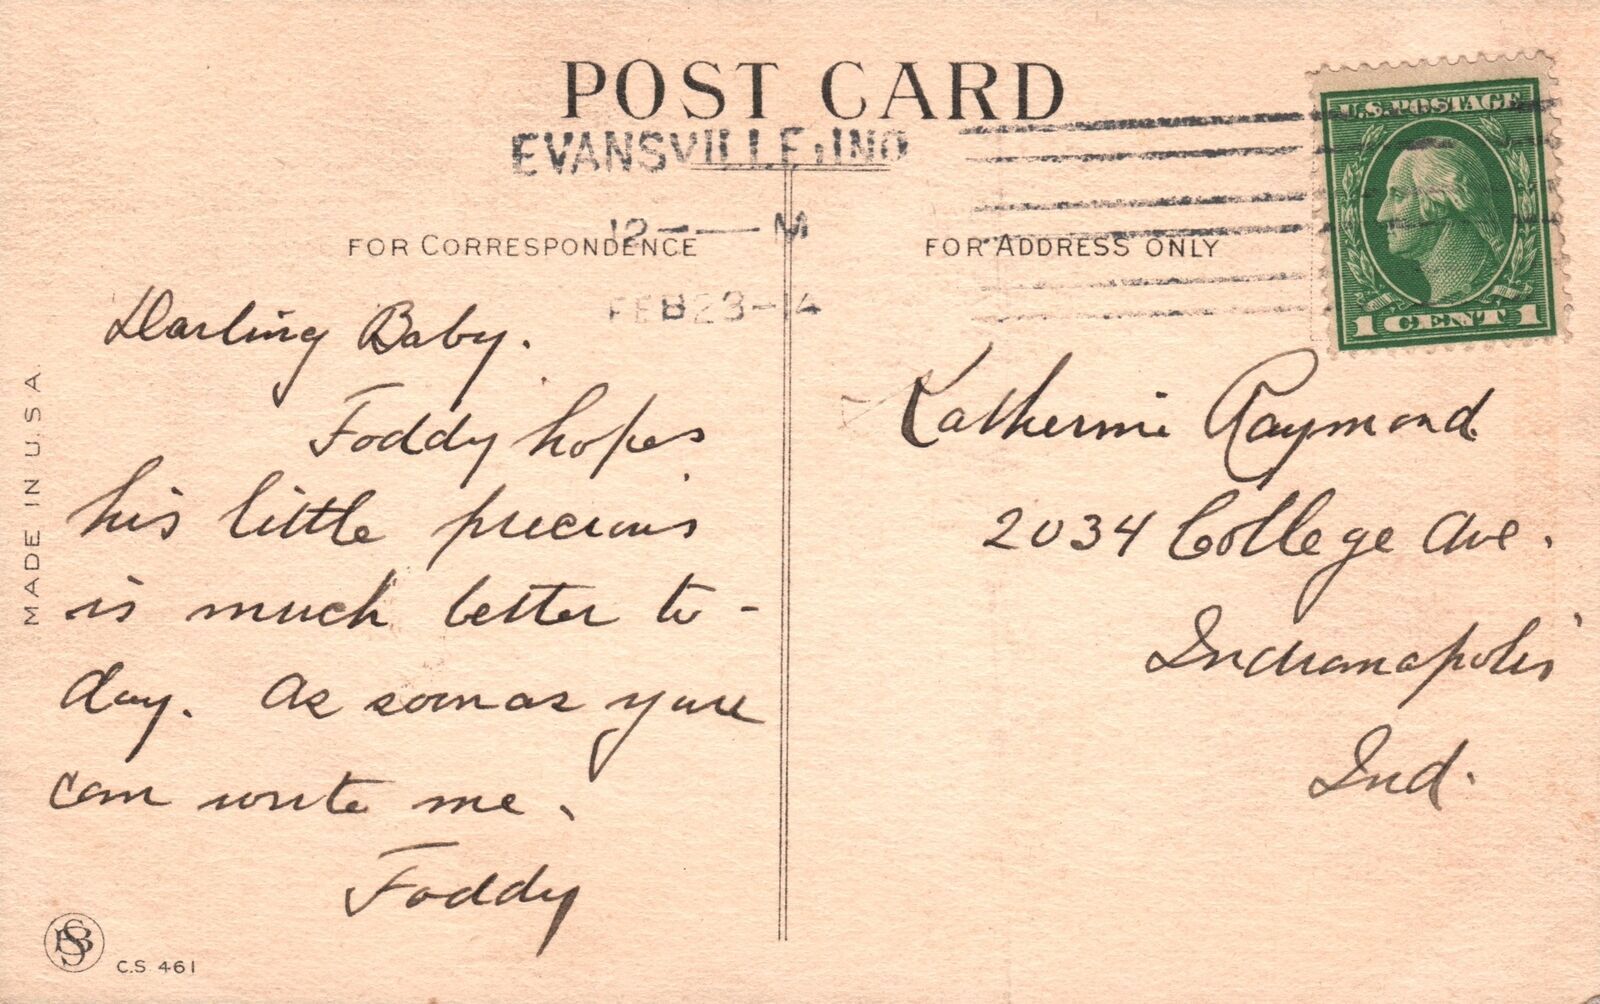 POST CARD
EVANSVILLE, IND
12 — M
FEB 23 - 14
U.S. POSTAGE
1 CENT 1
FOR CORRESPONDENCE
FOR ADDRESS ONLY
Darling Baby.
Foddy hopes
his little precious
is much better to-
day. As soon as you
can write me.
Foddy
Katherine Raymond
2034 College Ave.
Indianapolis
Ind.
MADE IN U.S.A
PSB
C.S. 461